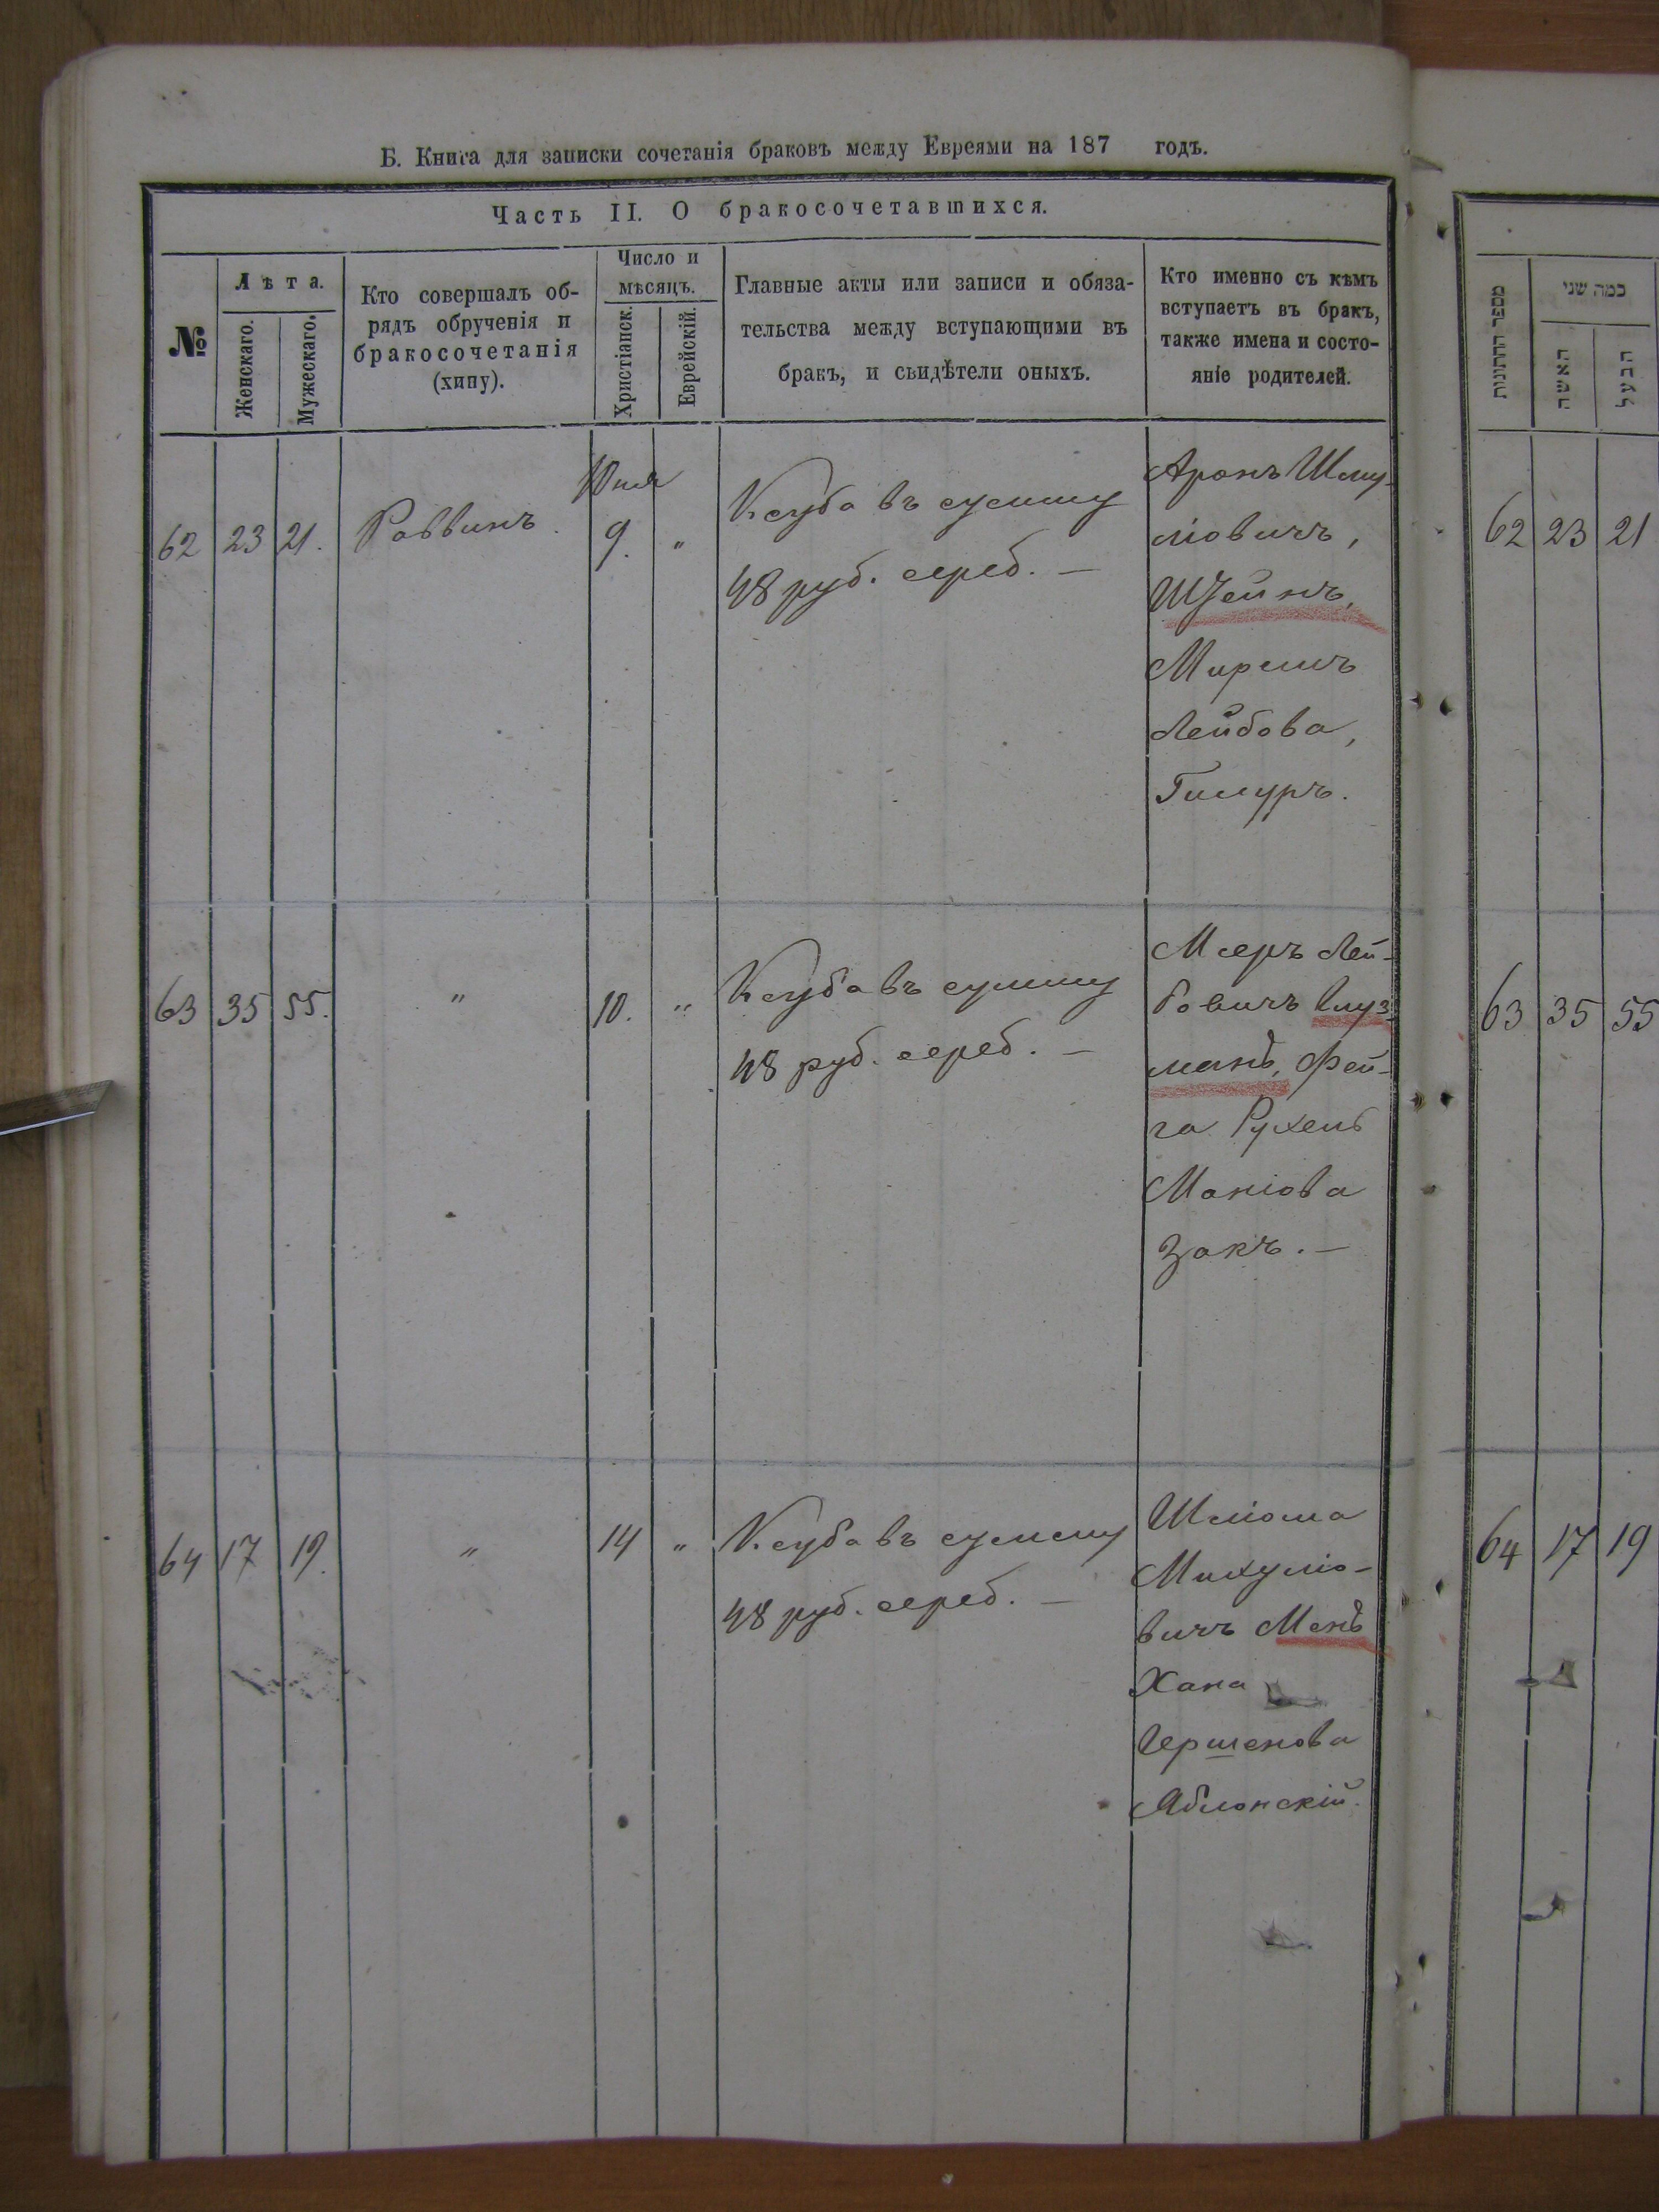 Б. Книга для записки сочетанія браковъ между Евреями на 187 годъ.
Часть II. О бракосочетавшихся.
№
Лѣта.
Женскаго.
Мужескаго.
Кто совершалъ об-
рядъ обрученія и
бракосочетанія
(хипу).
Число и
мѣсяцъ.
Христіанск.
Еврейскій.
Главные акты или записи и обяза-
тельства между вступающими въ
бракъ, и свидѣтели оныхъ.
Кто именно съ кѣмъ
вступаетъ въ бракъ,
также имена и состо-
яніе родителей.
62 23 21. Раввинъ.
9. "
Ксуба въ сумму
48 руб. сереб. —
Аронъ Шму-
ліовичъ,
Штейнъ,
Лейбова,
63 35 55. " 10. "
Ксуба въ сумму
48 руб. сереб. —
Меръ Лей-
бовичъ Глуз-
манъ, Фей-
га Рухель
Маніова
Закъ. —
64 17 19. " 14 "
Ксуба въ сумму
48 руб. сереб. —
Шліома
Михуліо-
вичъ Менъ
Хана
Гершенова
Яблонскій.
מספר החתונות
כמה שני
האשה
הבעל
62 23 21
63 35 55
64 17 19